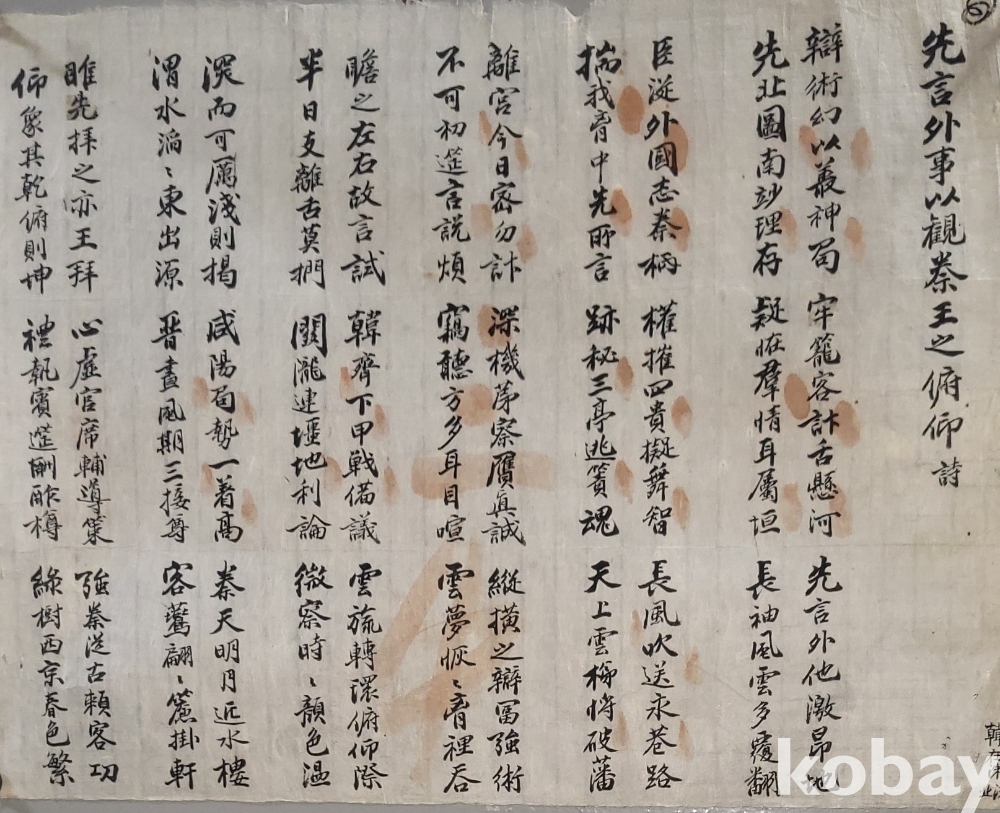 先言外事以觀秦王之俯仰詩
辯術幻以叢神蜀 牢籠客計舌懸河 先言外他激昂地
先北圖南妙理存 疑在羣情耳屬垣 長袖風雲多覆翻
臣從外國志秦柄 權摧四貴擬舞智 長風吹送永巷路
揣我胷中先所言 跡秘三亭逃簀魂 天上雲梯將破藩
離宮今日密勿計 深機芽察贋眞誠 縱橫之辯冨強術
不可初筵言說煩 竊聽方多耳目喧 雲夢恢〻胷裡吞
瞻之左右故言試 韓齊下甲戰備議 雲旒轉環俯仰際
半日支離舌莫捫 関隴連壃地利論 微察時〻顔色温
深而可厲淺則揭 咸陽蜀勢一着高 秦天明月近水樓
渭水滔〻東出源 晉晝風期三接尊 客鶯翩〻簾掛軒
睢先拜之亦王拜 心虛官席輔導策 強秦從古賴客功
仰象其乾俯則坤 禮執賓筵酬酢樽 綠樹西京春色繁
kobay